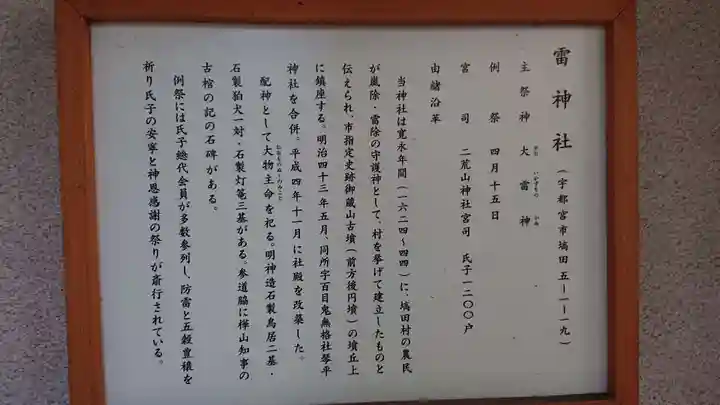 雷神社（宇都宮市塙田五ー一ー一九）
主祭神　大雷神
おお　いかずちの　かみ
例祭　四月十五日
宮司　二荒山神社宮司　氏子一二〇〇戸
由緒沿革
当神社は寛永年間（一六二四〜四四）に、塙田村の農民
が嵐除・雷除の守護神として、村を挙げて建立したものと
伝えられ、市指定史跡御蔵山古墳（前方後円墳）の墳丘上
に鎮座する。明治四十三年五月、同所字百目鬼無格社琴平
神社を合併。平成四年十一月に社殿を改築した。
配神として大物主命を祀る。明神造石製鳥居二基・
おおものぬしのみこと
石製狛犬一対・石製灯篭三基がある。参道脇に樺山知事の
古棺の記の石碑がある。
例祭には氏子総代会員が多数参列し、防雷と五穀豊穣を
祈り氏子の安寧と神恩感謝の祭りが斎行されている。